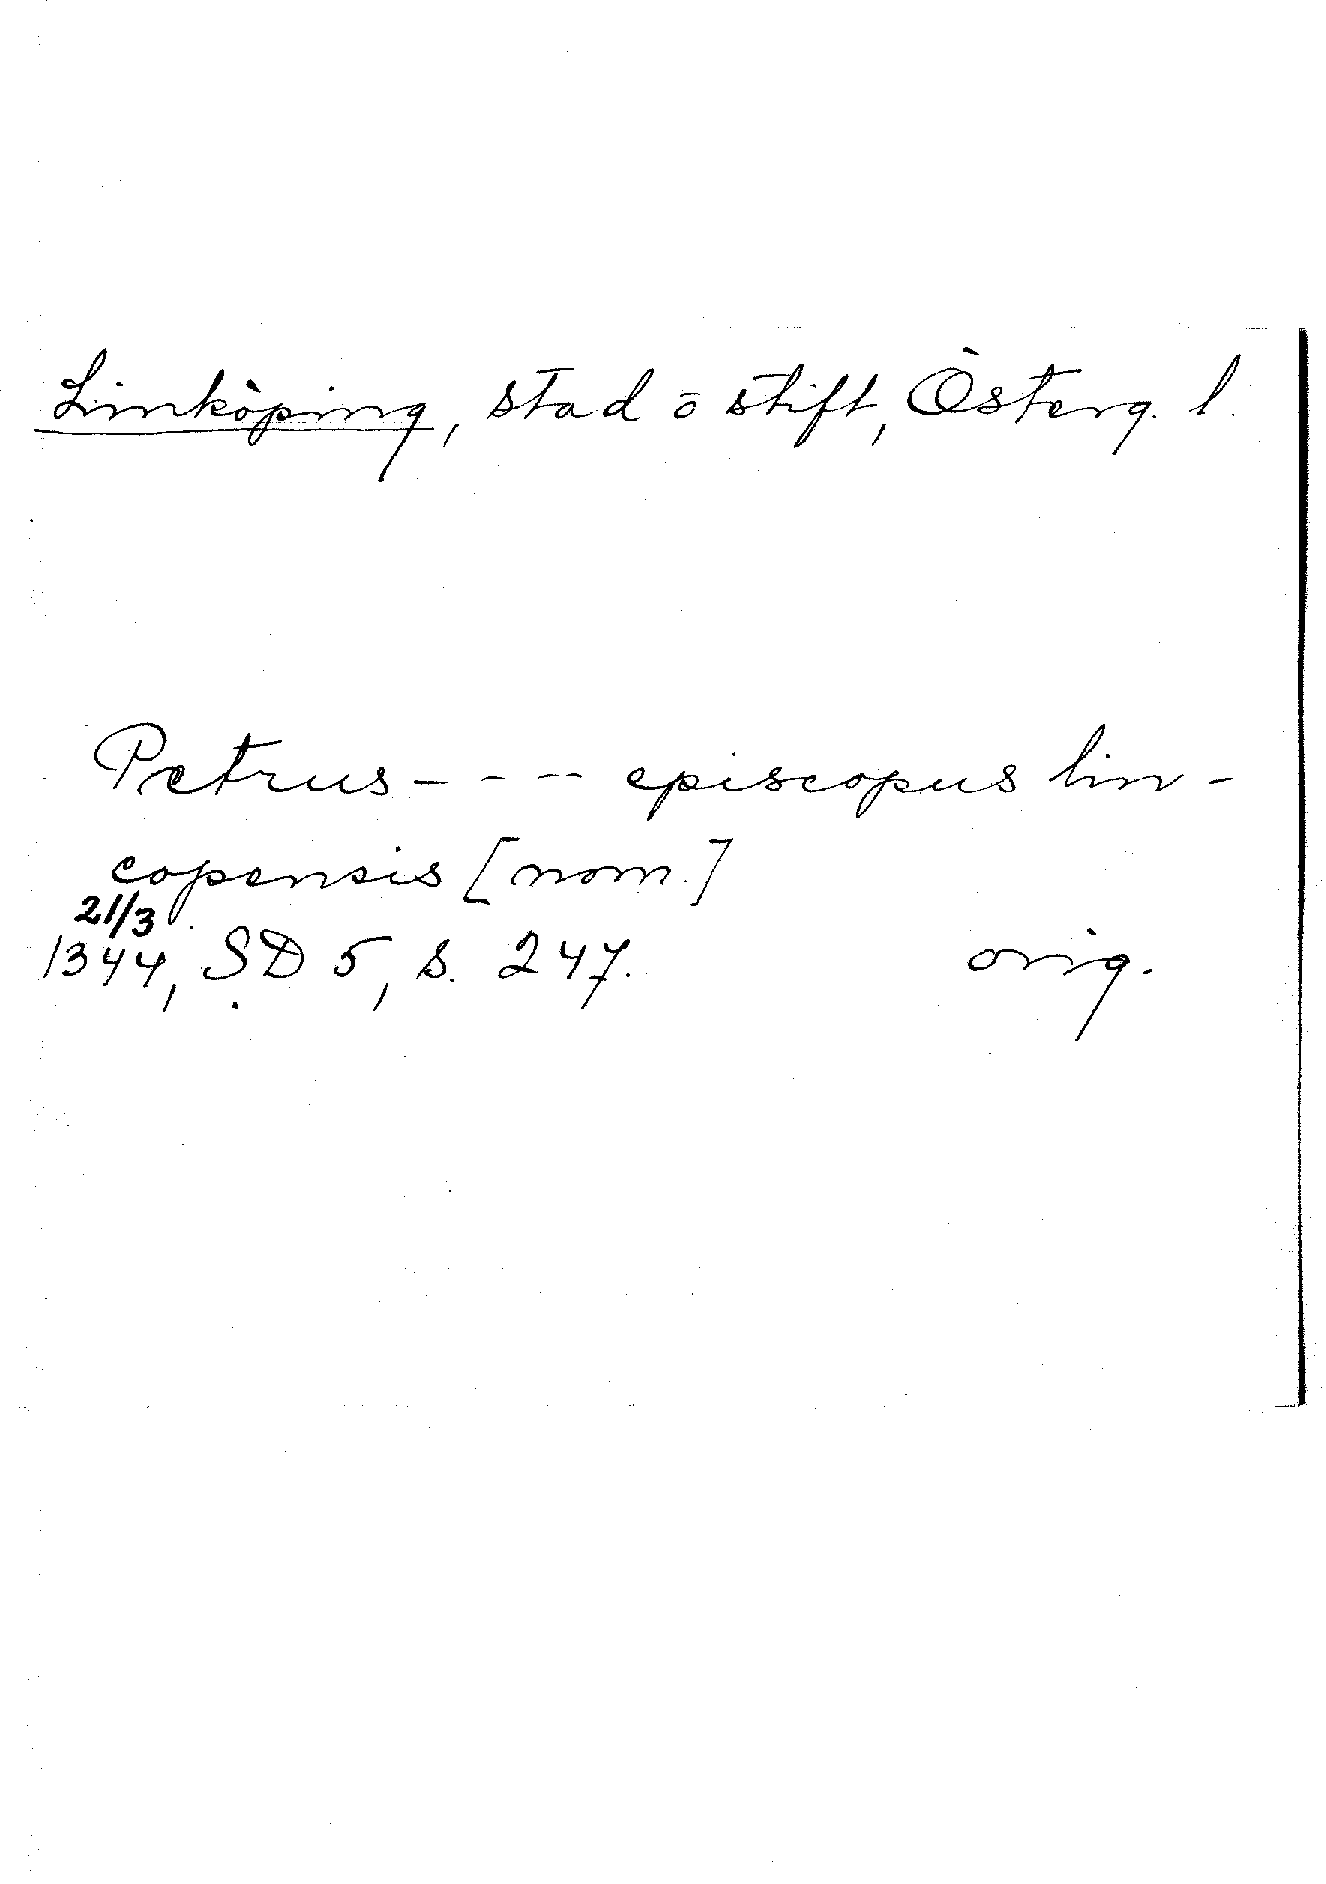 Linköping, stad o stift, Österg. l.
Petrus - - - - episcopus lin-
copensis [nom.]
21/3
1344, SD 5, s. 247. orig.